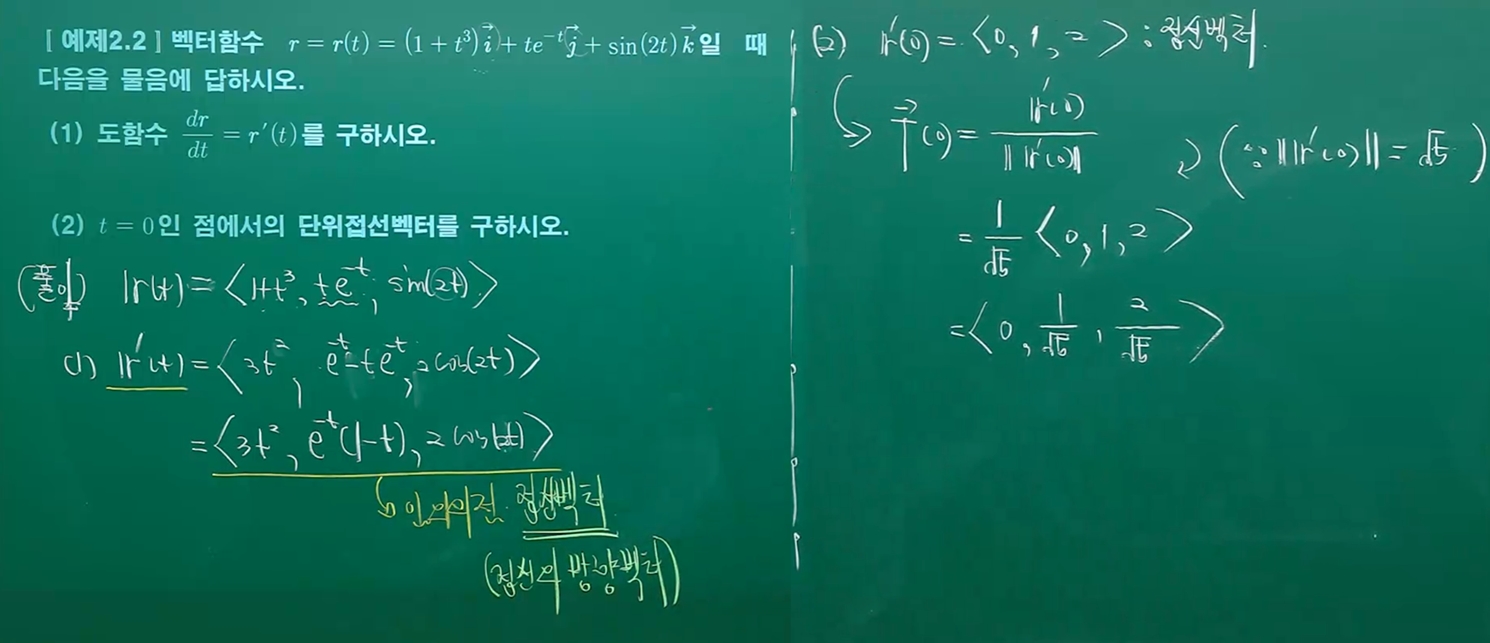 [ 예제2.2 ] 벡터함수 r = r(t) = (1 + t³) i⃗ + te⁻ᵗ j⃗ + sin(2t) k⃗ 일 때
다음을 물음에 답하시오.
(1) 도함수 dr/dt = r′(t)를 구하시오.
(2) t = 0인 점에서의 단위접선벡터를 구하시오.
(풀이) r(t) = <1+t³, te⁻ᵗ, sin(2t)>
(1) r′(t) = <3t², e⁻ᵗ-te⁻ᵗ, 2cos(2t)>
= <3t², e⁻ᵗ(1-t), 2cos(2t)>
↳ 임의의 점 접선벡터
(접선의 방향벡터)
(2) r′(0) = <0, 1, 2> : 접선벡터.
↳ T⃗(0) = r′(0)/||r′(0)|| (∵ ||r′(0)|| = √5)
= 1/√5 <0, 1, 2>
= <0, 1/√5, 2/√5>